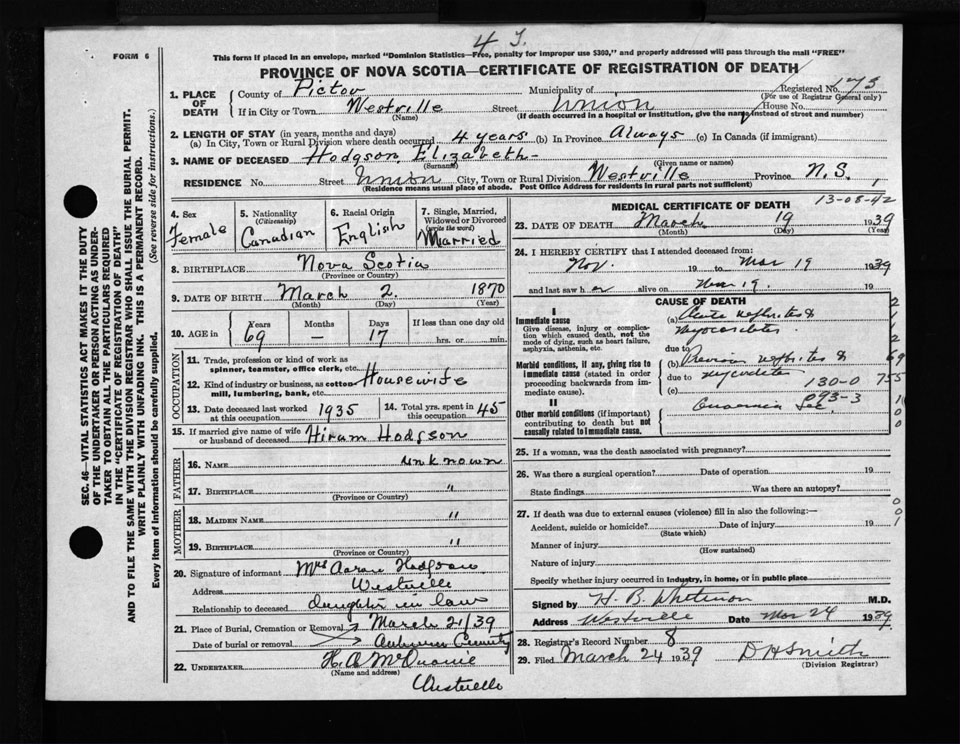 4 J.
FORM 6
This form if placed in an envelope, marked "Dominion Statistics—Free, penalty for improper use $300," and properly addressed will pass through the mail "FREE"
PROVINCE OF NOVA SCOTIA—CERTIFICATE OF REGISTRATION OF DEATH
1. PLACE OF DEATH
County of Pictou Municipality of Registered No. 175
(For use of Registrar General only)
If in City or Town Westville Street Union House No.
(Name) (If death occurred in a hospital or institution, give the name instead of street and number)
2. LENGTH OF STAY (in years, months and days)
(a) In City, Town or Rural Division where death occurred 4 years (b) In Province Always (c) In Canada (if immigrant)
3. NAME OF DECEASED Hodgson Elizabeth
(Surname) (Given name or names)
RESIDENCE No. Street Union City, Town or Rural Division Westville Province N.S.
(Residence means usual place of abode. Post Office Address for residents in rural parts not sufficient)
SEC. 46—VITAL STATISTICS ACT MAKES IT THE DUTY
OF THE UNDERTAKER OR PERSON ACTING AS UNDER-
TAKER TO OBTAIN ALL THE PARTICULARS REQUIRED
IN THE "CERTIFICATE OF REGISTRATION OF DEATH"
AND TO FILE THE SAME WITH THE DIVISION REGISTRAR WHO SHALL ISSUE THE BURIAL PERMIT.
WRITE PLAINLY WITH UNFADING INK. THIS IS A PERMANENT RECORD.
Every item of Information should be carefully supplied. (See reverse side for instructions.)
4. Sex
Female
5. Nationality
(Citizenship)
Canadian
6. Racial Origin
English
7. Single, Married,
Widowed or Divorced
(write the word)
Married
8. BIRTHPLACE Nova Scotia
(Province or Country)
9. DATE OF BIRTH March 2. 1870
(Month) (Day) (Year)
10. AGE in
Years Months Days If less than one day old
69 — 17 hrs. or min.
OCCUPATION
11. Trade, profession or kind of work as
spinner, teamster, office clerk, etc.
12. Kind of industry or business, as cotton Housewife
mill, lumbering, bank, etc.
13. Date deceased last worked
at this occupation 1935
14. Total yrs. spent in
this occupation 45
15. If married give name of wife
or husband of deceased Hiram Hodgson
FATHER
16. NAME unknown
17. BIRTHPLACE "
(Province or Country)
MOTHER
18. MAIDEN NAME "
19. BIRTHPLACE "
(Province or Country)
20. Signature of informant Mrs Aaron Hodgson
Address Westville
Relationship to deceased daughter in law
21. Place of Burial, Cremation or Removal March 21/39
Date of burial or removal
22. UNDERTAKER H. A.
(Name and address)
Westville
MEDICAL CERTIFICATE OF DEATH
13-08-42
23. DATE OF DEATH March 19 1939
(Month) (Day) (Year)
24. I HEREBY CERTIFY that I attended deceased from:
Nov. 19 to Mar 19 1939
and last saw her alive on Mar 19. 19
CAUSE OF DEATH
I
Immediate cause
Give disease, injury or complica-
tion which caused death, not the
mode of dying, such as heart failure,
asphyxia, asthenia, etc.
(a) Acute nephritis &
Myocarditis
due to
Morbid conditions, if any, giving rise to
immediate cause (stated in order
proceeding backwards from im-
mediate cause).
(b) nephritis &
due to
(c) 130-0
93-3
II
Other morbid conditions (if important)
contributing to death but not
causally related to immediate cause.
25. If a woman, was the death associated with pregnancy?
26. Was there a surgical operation? Date of operation 19
State findings Was there an autopsy?
27. If death was due to external causes (violence) fill in also the following:—
Accident, suicide or homicide? Date of injury 19
(State which)
Manner of injury
(How sustained)
Nature of injury
Specify whether injury occurred in industry, in home, or in public place
Signed by H. B. Whitman M.D.
Address Westville Date Mar 24 1939
28. Registrar's Record Number 8
29. Filed March 24 1939 D H Smith
(Division Registrar)